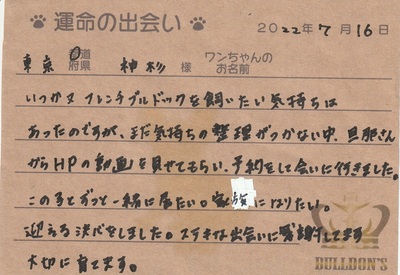 運命の出会い 2022年7月16日
東京 都道府県 神杉 様 ワンちゃんのお名前
いつかまたフレンチブルドックを飼いたい気持ちは
あったのですが、まだ気持ちの整理がつかない中、旦那さん
からHPの動画を見せてもらい、予約をして会いに行きました。
この子とずっと一緒に居たい。家族になりたい。
迎える決心をしました。ステキな出会いに感謝してます
大切に育てます。
BULLDON'S